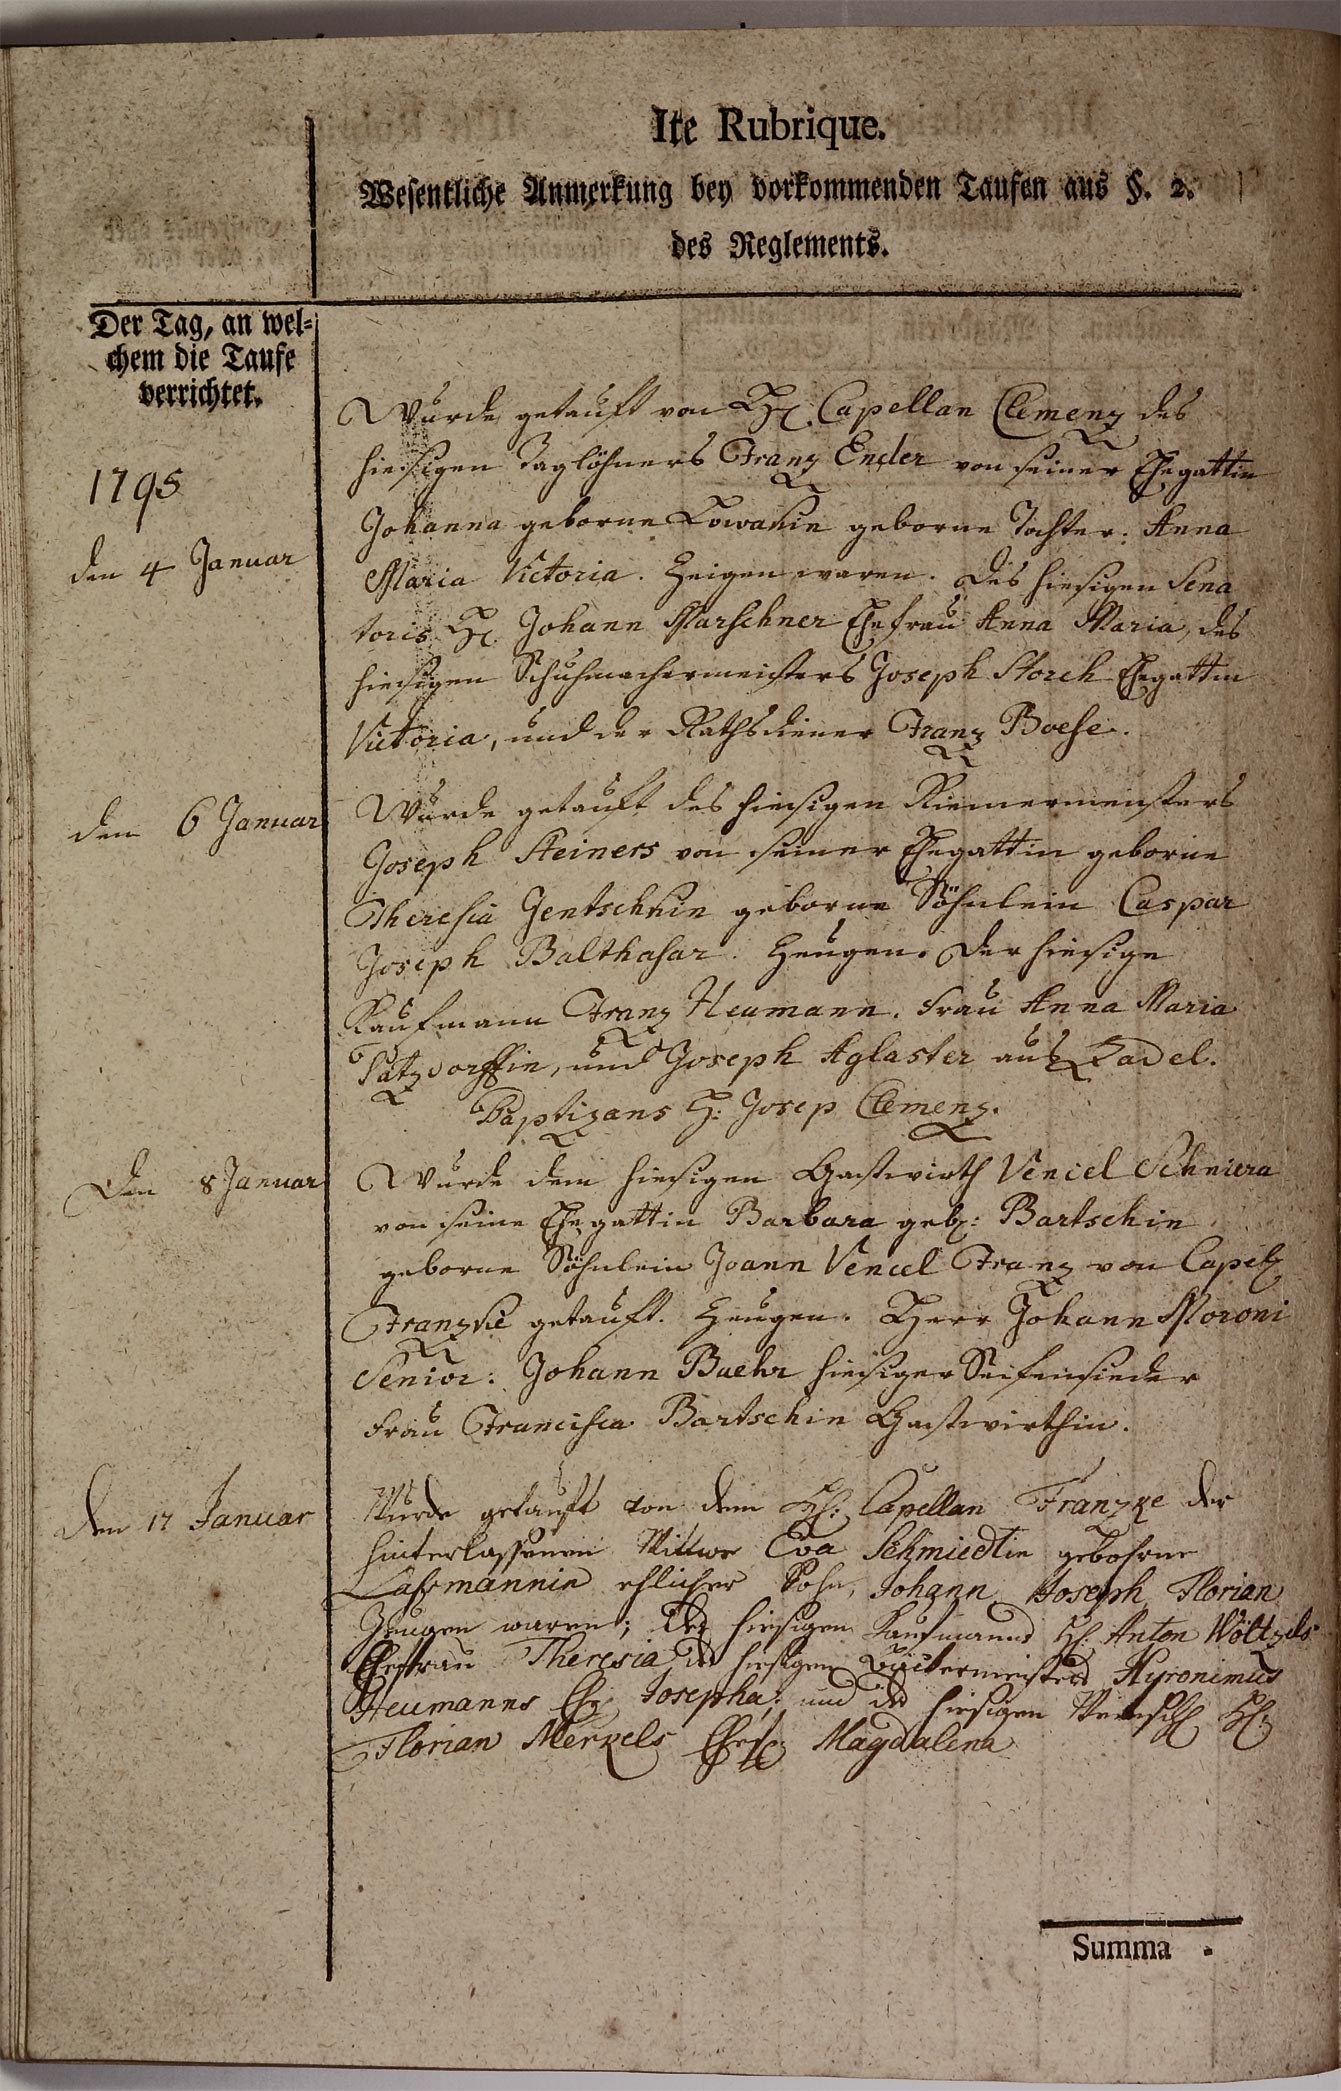 Ite Rubrique.
Wesentliche Anmerkung bey vorkommenden Taufen aus §. 2.
des Reglements.
Der Tag, an wel-
chem die Taufe
verrichtet.
1795
den 4 Januar
Wurde getauft von H. Capellan Clemenz des
hiesigen Taglöhners Franz Ender von seiner Ehegattin
Johanna geborne geborne Tochter. Anna
Maria Victoria. Zeigen waren. des hiesigen Sena
toris H. Johann Marschner Ehefrau Anna Maria, des
hiesigen Schuhmachermeisters Joseph Storch Ehegattin
Victoria, und der Rathsdiener Franz Boese.
den 6 Januar
Wurde getauft des hiesigen Riemermeisters
Joseph Steiners von seiner Ehegattin geborne
Theresia Jentschkin geborne Söhnlein Caspar
Joseph Balthasar. Zeugen. der hiesige
Kaufmann Franz Heumann. Frau Anna Maria
Patzdorffin, und Joseph Aglaster aus Zadel.
Baptizans H: Josep Clemenz.
Den 8 Januar
Wurde dem hiesigen Gastwirth Vencel Schniera
von seine Ehegattin Barbara geb: Bartschin
geborne Söhnlein Joann Vencel Franz von Capel
Franzke getauft. Zeugen. Herr Johann Moroni
Senior. Johann Buehr hiesiger Seifensieder
Frau Francisca Bartschin Gastwirthin.
Den 17 Januar
Wurde getauft von dem H: Capellan Franzke der
hinterlassenen Wittwe Eva Schmiedtin gebohrne
Lahrmannin ehlicher Sohn, Johann Joseph Florian
Zeugen waren; des hiesigen Kaufmanns H: Anton Wöltzels
Ehefrau Theresia des hiesigen Büttermeisters Hyronimus
Heumanns Ehe Josepha; und des hiesigen H:
Florian Merkels Ehef: Magdalena
Summa